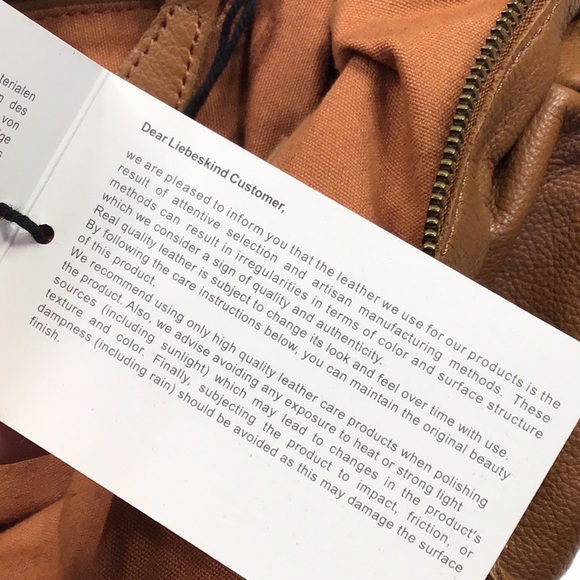 terialen
des
von
ige
s
Dear Liebeskind Customer,
we are pleased to inform you that the leather we use for our products is the
result of attentive selection and artisan manufacturing methods. These
methods can result in irregularities in terms of color and surface structure
which we consider a sign of quality and authenticity.
Real quality leather is subject to change its look and feel over time with use.
By following the care instructions below, you can maintain the original beauty
of this product.
We recommend using only high quality leather care products when polishing
the product. Also, we advise avoiding any exposure to heat or strong light
sources (including sunlight) which may lead to changes in the product's
texture and color. Finally, subjecting the product to impact, friction, or
dampness (including rain) should be avoided as this may damage the surface
finish.